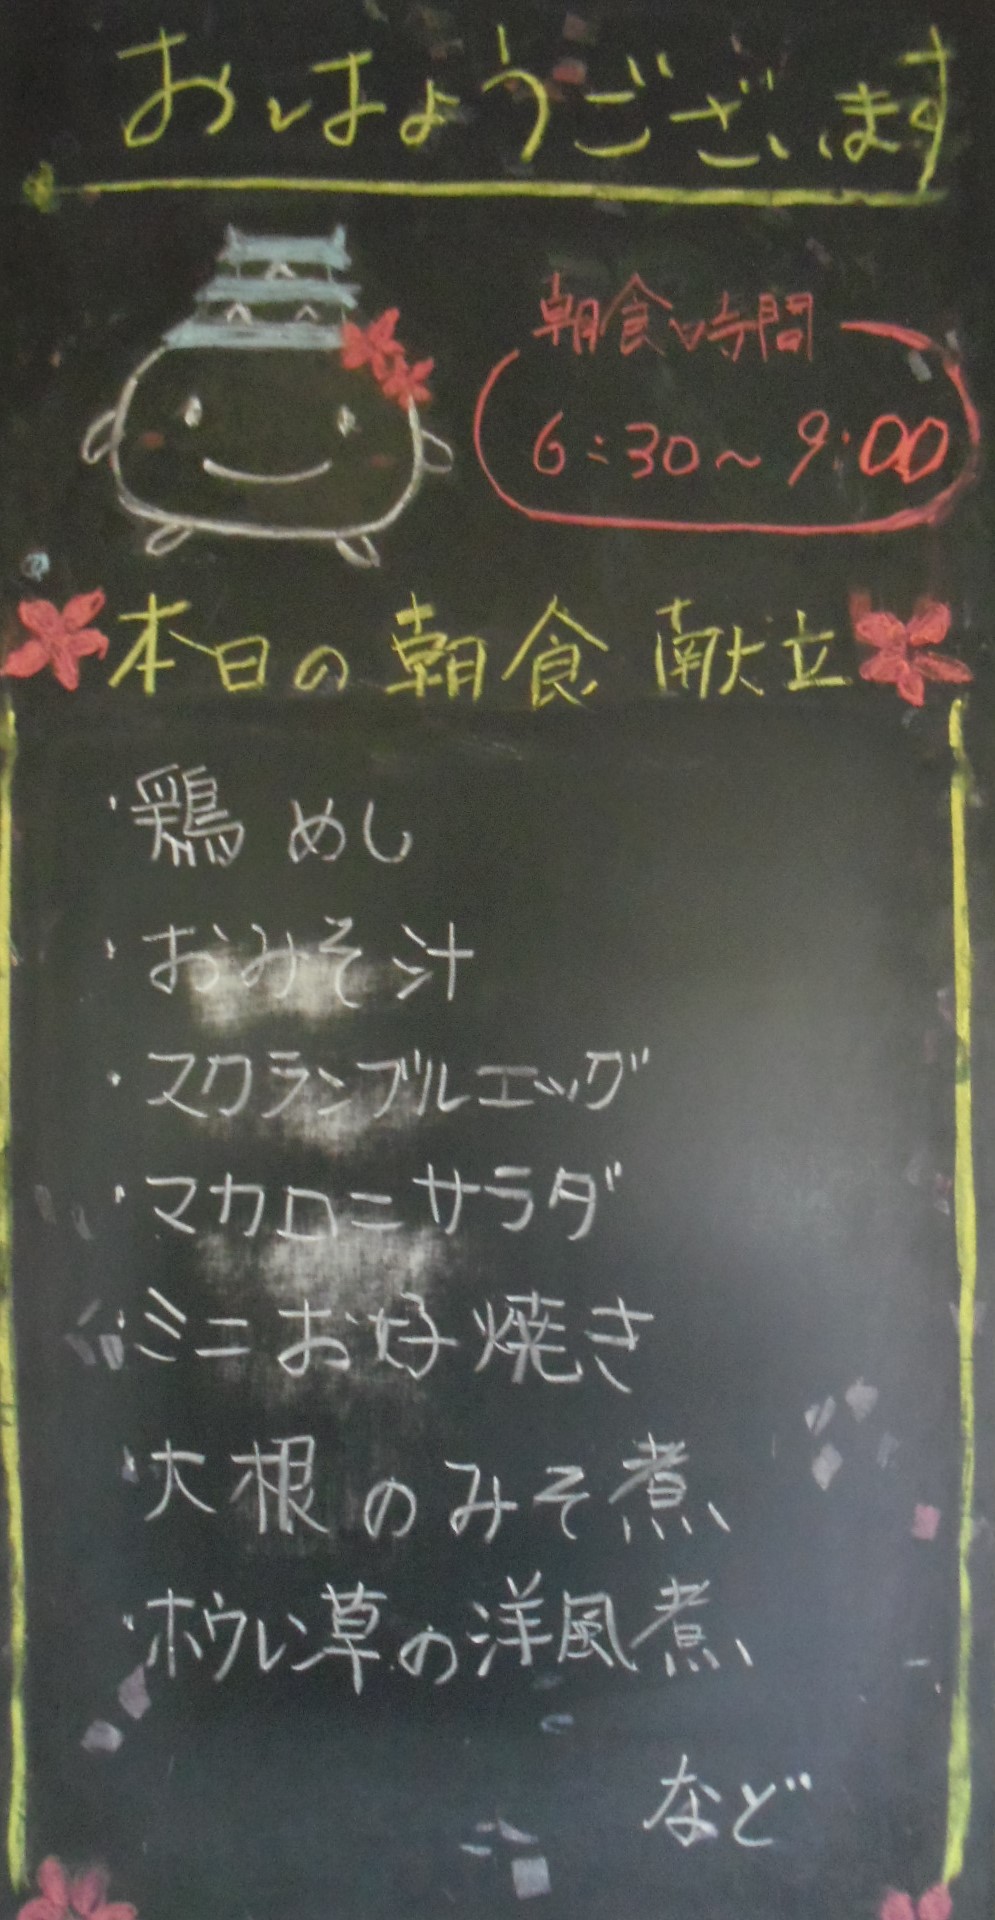 おはようございます
朝食時間
6:30~9:00
本日の朝食献立
・鶏めし
・おみそ汁
・スクランブルエッグ
・マカロニサラダ
・ミニお好焼き
・大根のみそ煮
・ホウレン草の洋風煮
など